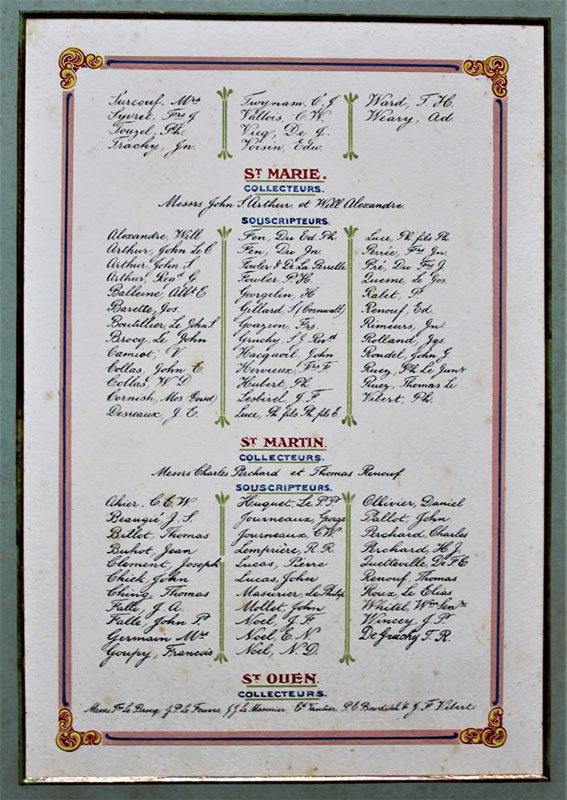 Surcouf, Mrs Twynam, C. J Ward, T. H.
Syvret, Frs J Vallois, C. W. Weary, Ad
Touzel, Ph. Vicq, De J.
Trachy, Jn. Voisin, Edw.
ST MARIE.
COLLECTEURS.
Messrs John S Arthur et Will Alexandre
SOUSCRIPTEURS.
Alexandre, Will Fen, Du Ed Ph. Luce, Ph. fils Ph.
Arthur, John Le C Fen, Du Jn. Perrée, Frs Jn.
Arthur, John S Fowler & De La Perrelle Pré, Du Frs J.
Arthur, G Fowler P. H. Quemé Le Jos.
Balleine, Albt E Georgelin, H Ralet, P.
Barette, Jos. Gillard, S (Cornwall) Renouf, Ed.
Boutillier, Le John S Goazion, Frs. Rimeurs, Jn
Brocq, Le John Gruchy, S. J. Rolland, Jgs.
Camiot, V. Hacquoil, John Rondel, John G
Collas, John C. Hervieux, Frs F Ruez, Ph. Le Junr
Collas, W D Hubert, Ph. Ruez, Thomas Le
Cornish, Mos Lesbirel, J. F Vibert, Ph.
Desreaux, J. E. Luce, Ph. fils Ph. fils E.
ST MARTIN.
COLLECTEURS.
Messrs Charles Perchard et Thomas Renouf
SOUSCRIPTEURS.
Ahier, C. E. W Huquet, Le P. P. Ollivier, Daniel
Beaugié, J. S. Journeaux, George Pallot, John
Billot, Thomas Journeaux, C. W. Perchard, Charles
Buhot, Jean Lemprière, R. R. Perchard, H. J.
Clement, Joseph Lucas, Pierre Quetteville, De F E
Chick, John Lucas, John Renouf, Thomas
Ching, Thomas Masurier, Le Philip Roux, Le Elias
Falle, J. A. Mollet, John Whitel, Wm Senr
Falle, John P. Noel, J. F. Wincey, J. P.
Germain, Mrs Noel, E. N De Gruchy, T. R.
Goupy, Francois Noel, N. D.
ST OUEN.
COLLECTEURS.
Messrs Le Brocq, J. P. Le Feuvre, J. J. Le Masurier, Ed Vautier, P. E. & J. F Vibert